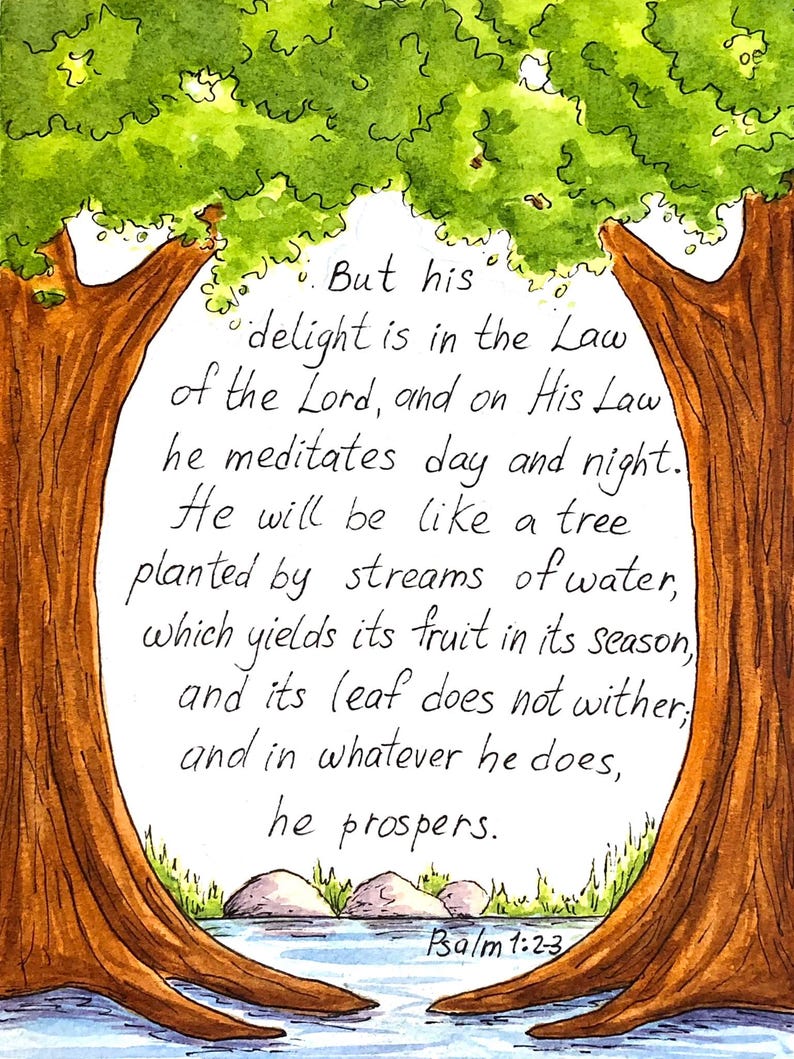 But his
delight is in the Law
of the Lord, and on His Law
he meditates day and night.
He will be like a tree
planted by streams of water,
which yields its fruit in its season,
and its leaf does not wither;
and in whatever he does,
he prospers.
Psalm 1:2-3